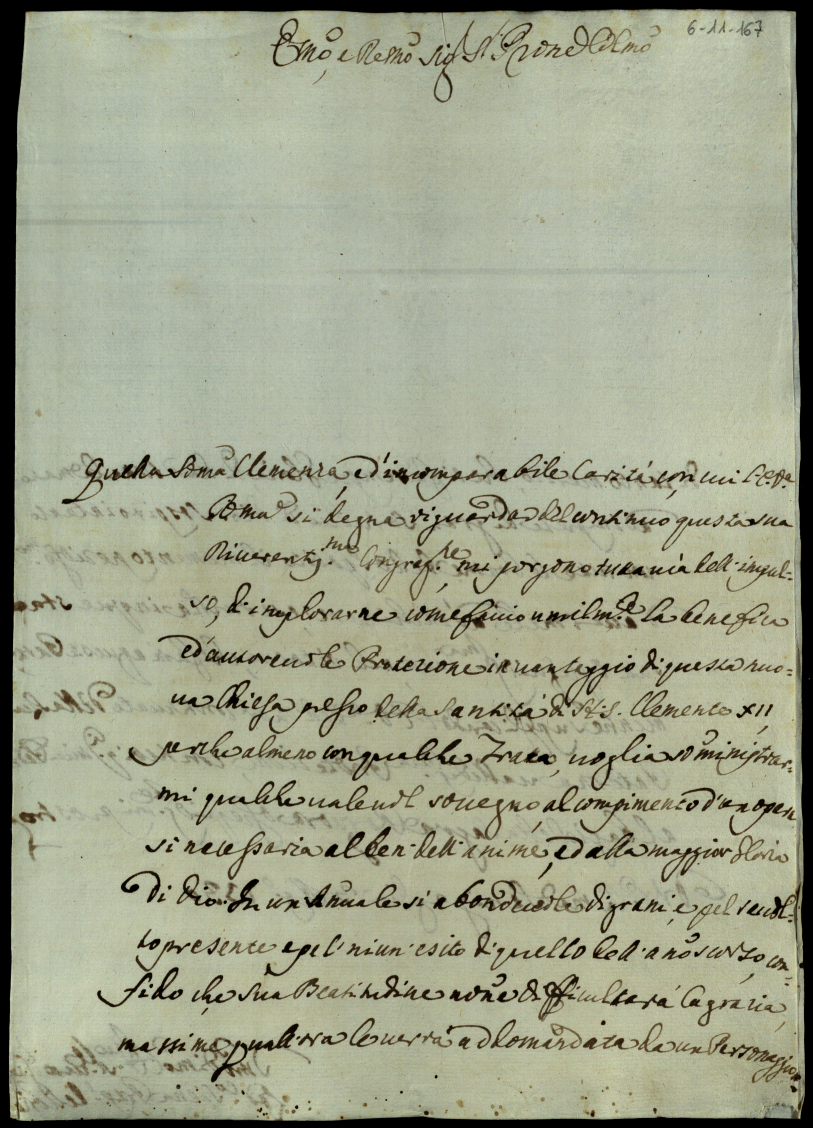 6-11-167
Emo, e Remo Sig.r Sr. Prone Colmo
Quella Soma Clemenza, ed'incomparabile Carità con cui l'E. Va.
Roma si degna riguardar del continuo questa sua
Riverentis.ma Congreg.ne mi porgono tuttavia dell'impul=
so, d'implorarne come faccio umilm.te la benefica
ed'autorevole Protezione in vantaggio di questa nuo=
va Chiesa presso della Santità di N. S. Clemente XII,
perche almeno con qualche Tratta, voglia somministrar=
mi qualche valevol sovegno, al compimento d'un opera
si necessaria al ben dell'anime, ed alla maggior Gloria
Di Dio. In un Annuale si abondevole di grani, e pel
to presente e pel niun'esito di quello dell'anno scorso, con=
fido che Sua Beatitudine none difficultarà la grazia,
massime qual'ora le verrà addomandata da un Personaggio